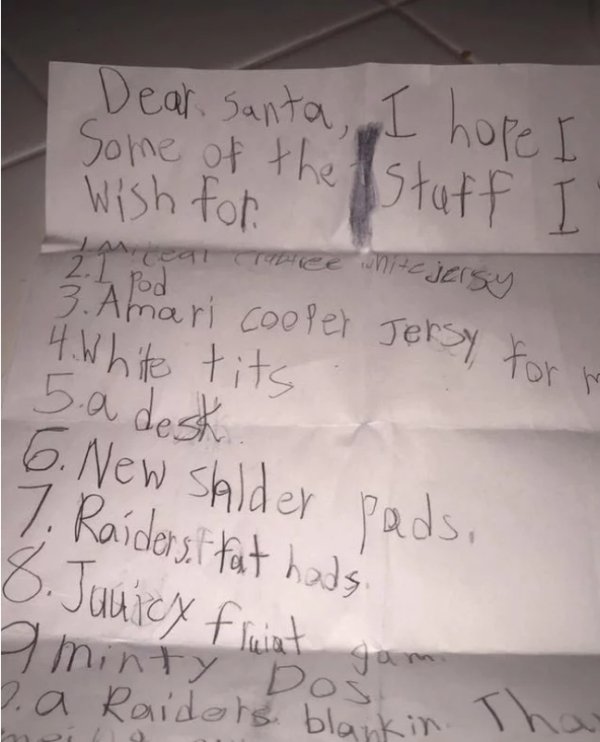 Dear Santa, I hope I
Some of the Stuff I
Wish for.
1 Miceal Crabtree white jersy
2. I Pod
3. Amari Cooper Jersy for
4. White tits
5. a desk
6. New shlder Pads.
7. Raiders. fat hads.
8. Jauicy fruiat gam.
9 minty Dos
a Raiders blankin.